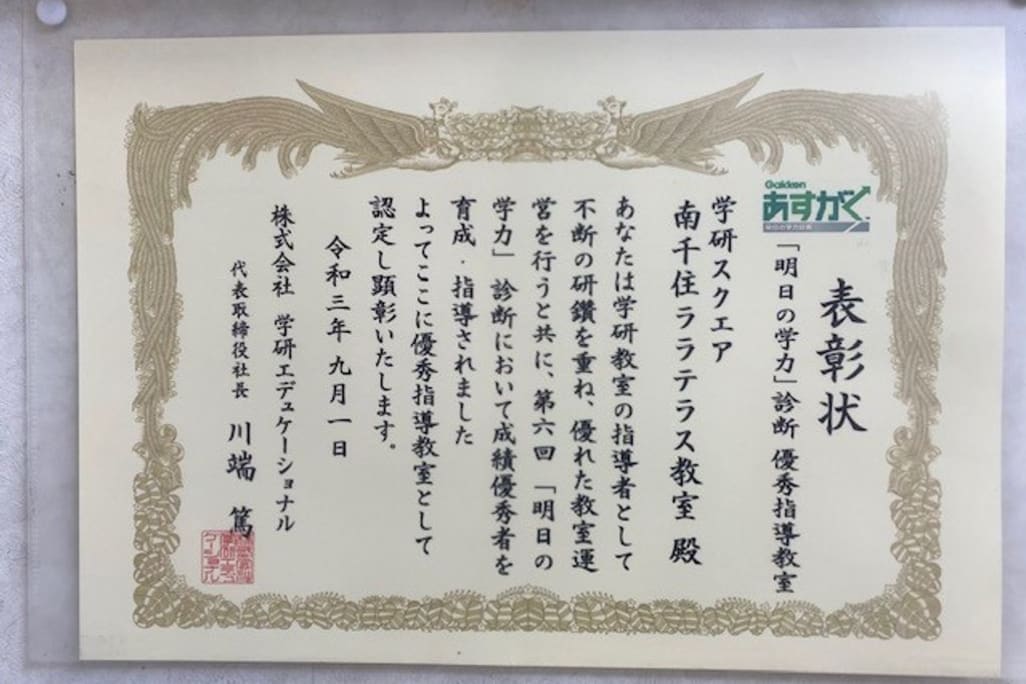 表彰状
Gakken
あすがく
「明日の学力」診断 優秀指導教室
学研スクエア
南千住ララテラス教室 殿
あなたは学研教室の指導者として
不断の研鑽を重ね、優れた教室運
営を行うと共に、第六回「明日の
学力」診断において成績優秀者を
育成・指導されました
よってここに優秀指導教室として
認定し顕彰いたします。
令和三年九月一日
株式会社 学研エデュケーショナル
代表取締役社長 川端 篤